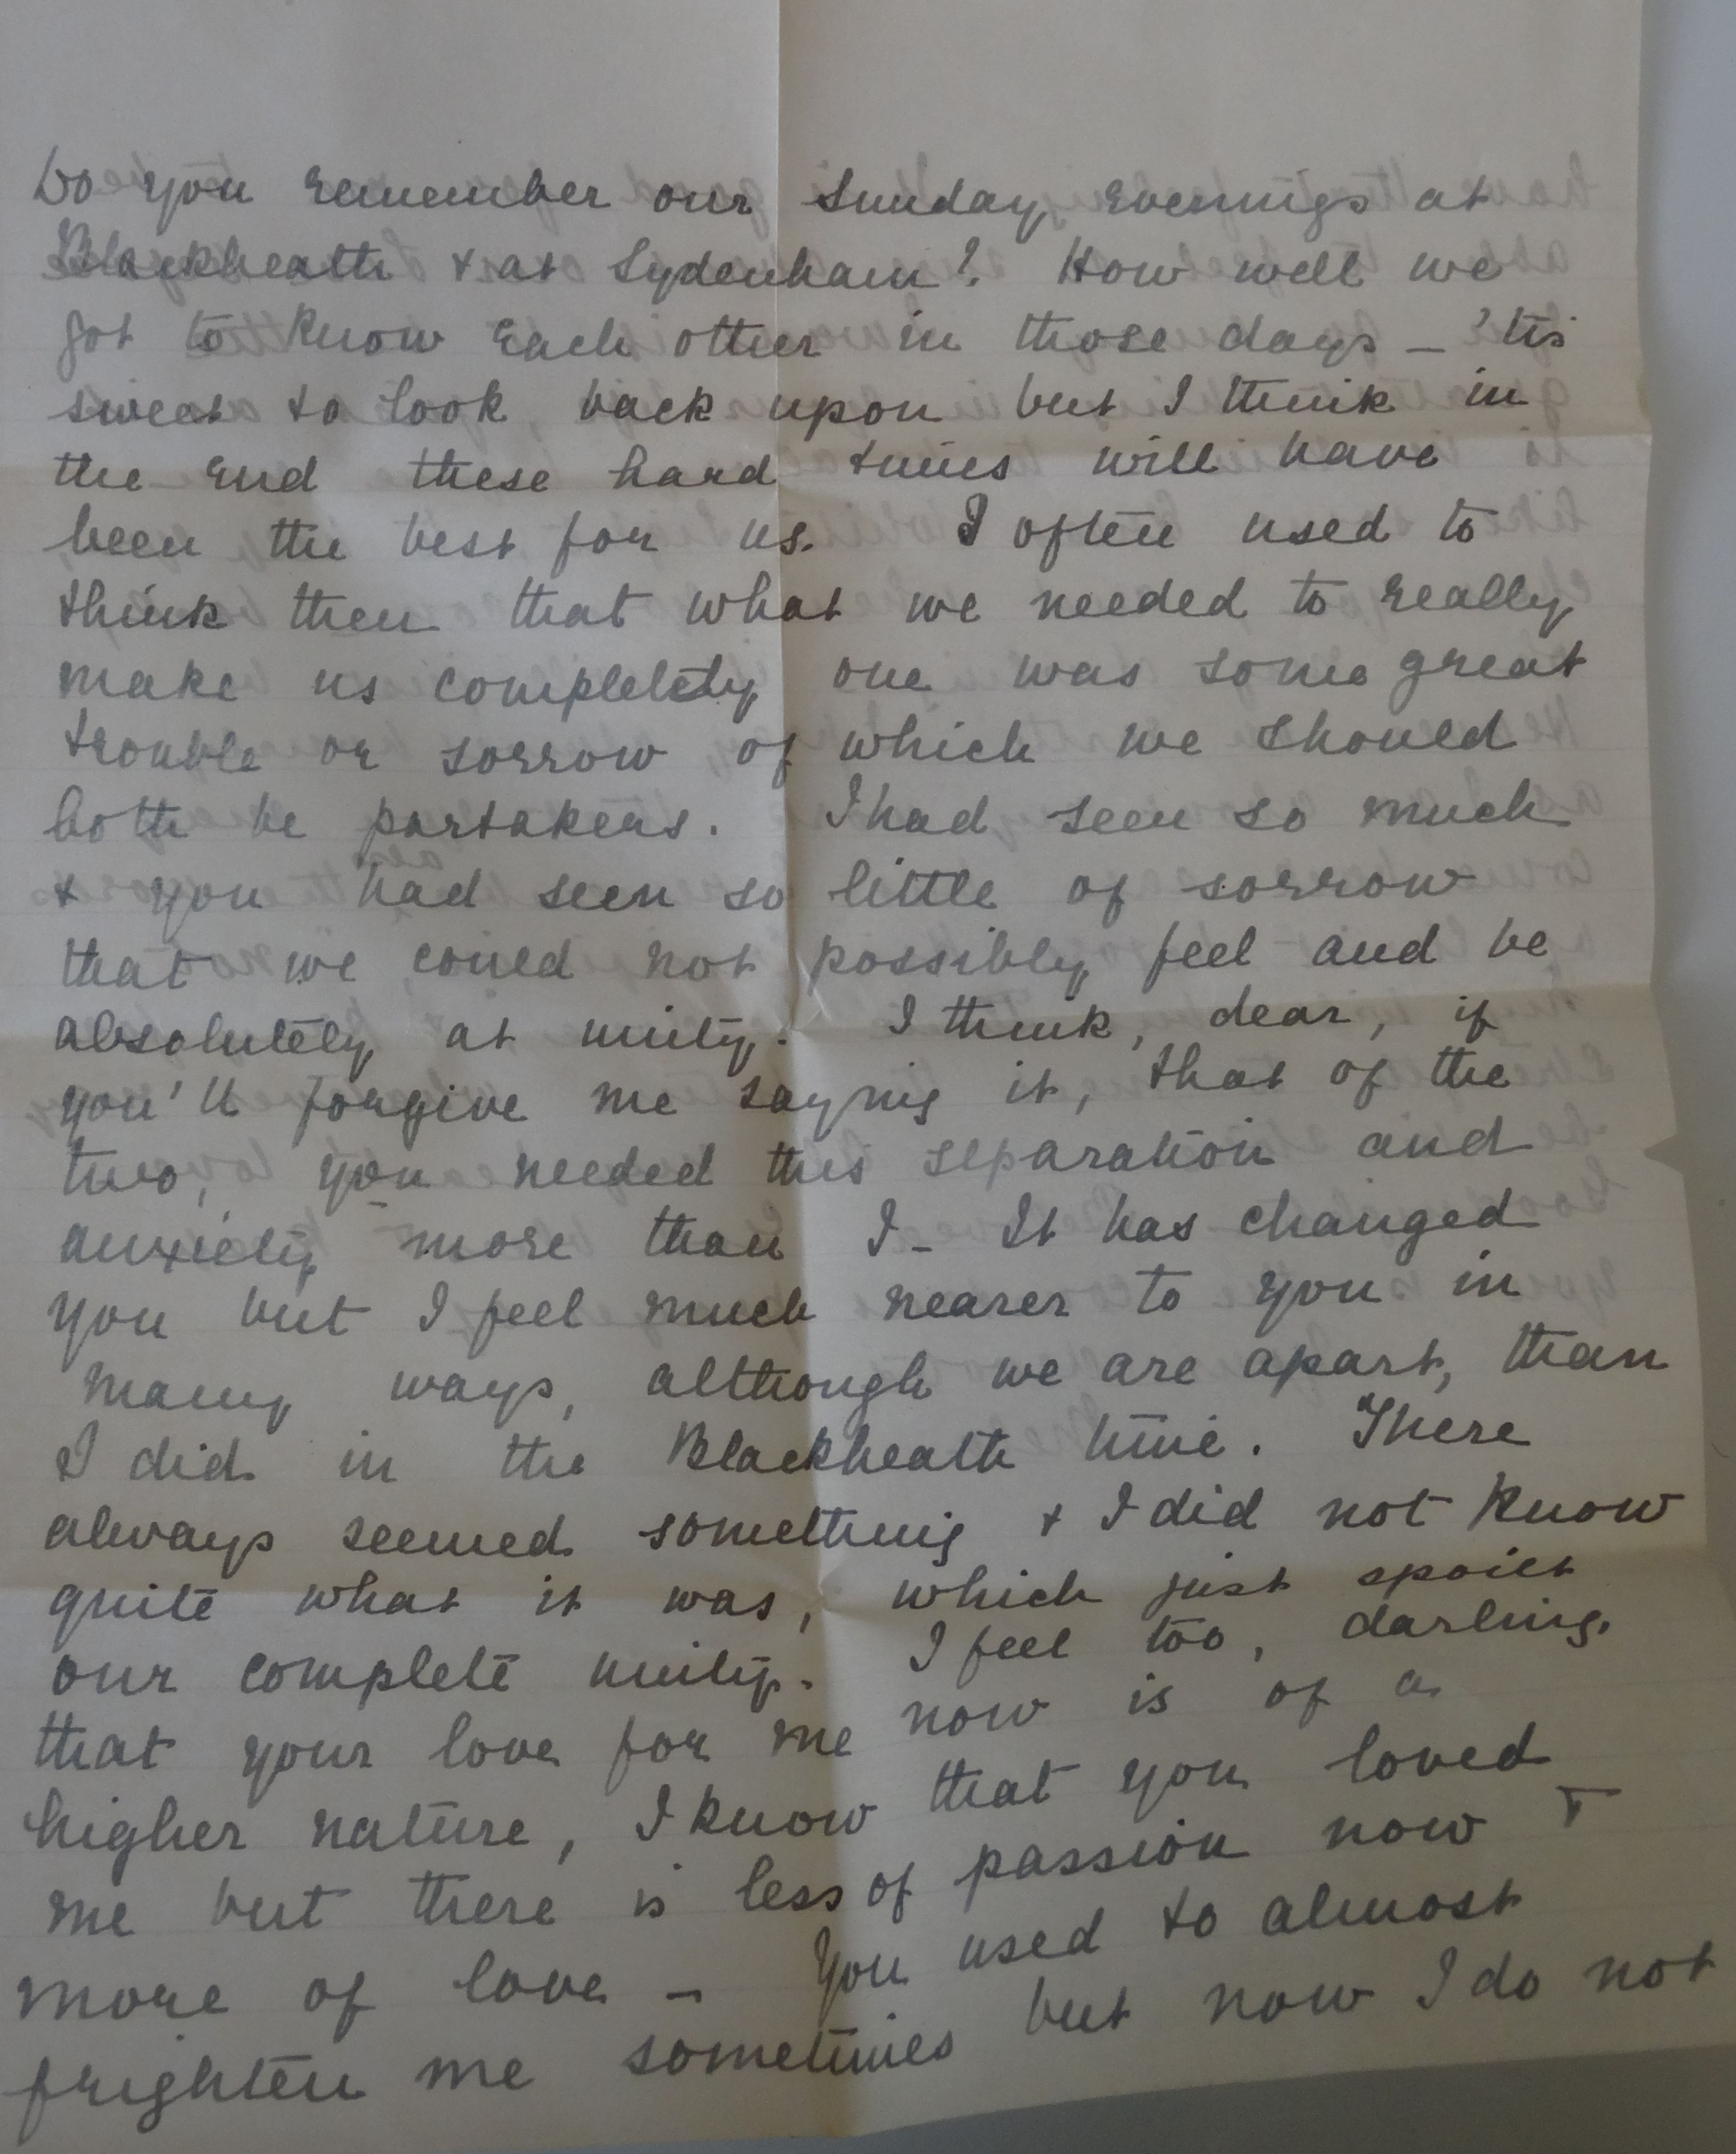 Do you remember our Sunday evenings at
Blackheath & at Sydenham? How well we
got to know each other in those days – 'tis
sweet to look back upon but I think in
the end these hard times will have
been the best for us. I often used to
think then that what we needed to really
make us completely one was some great
trouble or sorrow of which we should
both be partakers. I had seen so much
& you had seen so little of sorrow
that we could not possibly feel and be
absolutely at unity. I think, dear, if
you'll forgive me saying it, that of the
two, you needed this separation and
anxiety more than I – It has changed
you but I feel much nearer to you in
many ways, although we are apart, than
I did in the Blackheath time. There
always seemed something & I did not know
quite what it was, which just spoilt
our complete unity. I feel too, darling,
that your love for me now is of a
higher nature, I know that you loved
me but there is less of passion now &
more of love – You used to almost
frighten me sometimes but now I do not